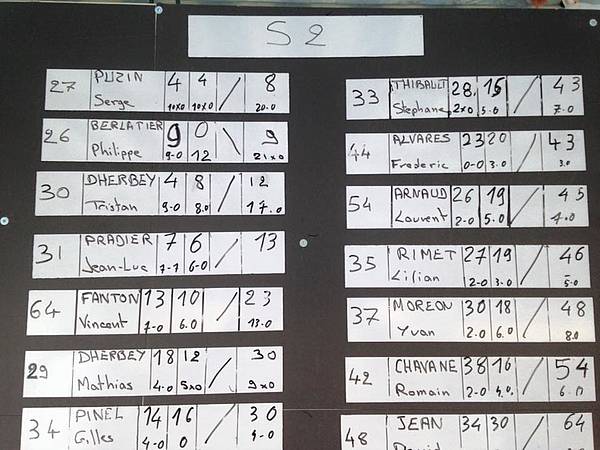 S2
27 PUZIN 4 4 / 8
Serge 10x0 10x0 20.0
26 BERLATIER 9 0 \ 9
Philippe 9-0 12 21x0
30 DHERBEY 4 8 / 12
Tristan 9-0 8.0 17.0
31 PRADIER 7 6 / 13
Jean-Luc 7-1 6-0
64 FANTON 13 10 / 23
Vincent 7-0 6.0 13.0
29 DHERBEY 18 12 / 30
Mathias 4.0 5x0 9x0
34 PINEL 14 16 / 30
Gilles 4-0 0 4-0
33 THIBAULT 28 15 / 43
Stephane 2x0 5.0 7.0
44 ALVARES 23 20 / 43
Frederic 0-0 3.0 3.0
54 ARNAUD 26 19 / 45
Laurent 2-0 5.0
35 RIMET 27 19 / 46
Lilian 2.0 3.0 5.0
37 MOREON 30 18 / 48
Yvan 2.0 6.0 8.0
42 CHAVANE 38 16 / 54
Romain 2-0 4.0
48 JEAN 34 30 64